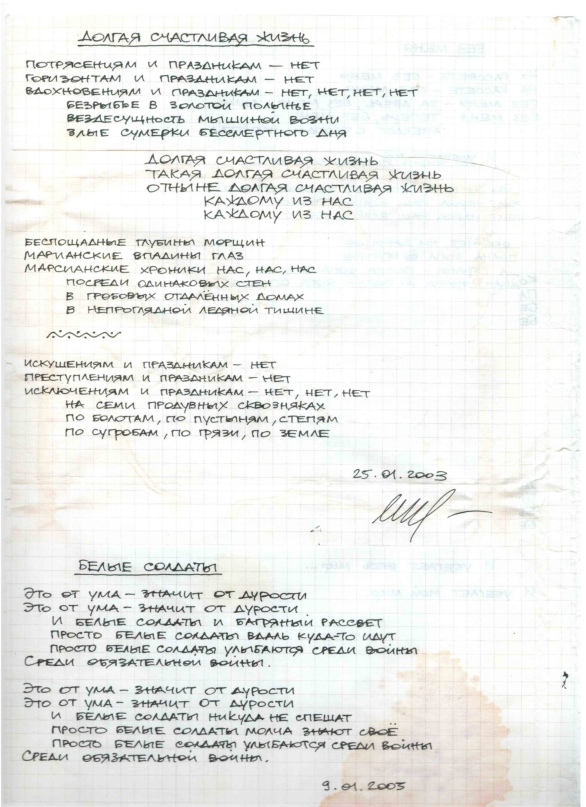 ДОЛГАЯ СЧАСТЛИВАЯ ЖИЗНЬ
ПОТРЯСЕНИЯМ И ПРАЗДНИКАМ — НЕТ
ГОРИЗОНТАМ И ПРАЗДНИКАМ — НЕТ
ВДОХНОВЕНИЯМ И ПРАЗДНИКАМ — НЕТ, НЕТ, НЕТ, НЕТ
БЕЗРЫБЬЕ В ЗОЛОТОЙ ПОЛЫНЬЕ
ВЕЗДЕСУЩНОСТЬ МЫШИНОЙ ВОЗНИ
ЗЛЫЕ СУМЕРКИ БЕССМЕРТНОГО ДНЯ
ДОЛГАЯ СЧАСТЛИВАЯ ЖИЗНЬ
ТАКАЯ ДОЛГАЯ СЧАСТЛИВАЯ ЖИЗНЬ
ОТНЫНЕ ДОЛГАЯ СЧАСТЛИВАЯ ЖИЗНЬ
КАЖДОМУ ИЗ НАС
КАЖДОМУ ИЗ НАС
БЕСПОЩАДНЫЕ ГЛУБИНЫ МОРЩИН
МАРИАНСКИЕ ВПАДИНЫ ГЛАЗ
МАРСИАНСКИЕ ХРОНИКИ НАС, НАС, НАС
ПОСРЕДИ ОДИНАКОВЫХ СТЕН
В ГРОБОВЫХ ОТДАЛЁННЫХ ДОМАХ
В НЕПРОГЛЯДНОЙ ЛЕДЯНОЙ ТИШИНЕ
ИСКУШЕНИЯМ И ПРАЗДНИКАМ — НЕТ
ПРЕСТУПЛЕНИЯМ И ПРАЗДНИКАМ — НЕТ
ИСКЛЮЧЕНИЯМ И ПРАЗДНИКАМ — НЕТ, НЕТ, НЕТ
НА СЕМИ ПРОДУВНЫХ СКВОЗНЯКАХ
ПО БОЛОТАМ, ПО ПУСТЫНЯМ, СТЕПЯМ
ПО СУГРОБАМ, ПО ГРЯЗИ, ПО ЗЕМЛЕ
25.01.2003
БЕЛЫЕ СОЛДАТЫ
ЭТО ОТ УМА — ЗНАЧИТ ОТ ДУРОСТИ
ЭТО ОТ УМА — ЗНАЧИТ ОТ ДУРОСТИ
И БЕЛЫЕ СОЛДАТЫ И БАГРЯНЫЙ РАССВЕТ
ПРОСТО БЕЛЫЕ СОЛДАТЫ ВДАЛЬ КУДА-ТО ИДУТ
ПРОСТО БЕЛЫЕ СОЛДАТЫ УЛЫБАЮТСЯ СРЕДИ ВОЙНЫ
СРЕДИ ОБЯЗАТЕЛЬНОЙ ВОЙНЫ.
ЭТО ОТ УМА — ЗНАЧИТ ОТ ДУРОСТИ
ЭТО ОТ УМА — ЗНАЧИТ ОТ ДУРОСТИ
И БЕЛЫЕ СОЛДАТЫ НИКУДА НЕ СПЕШАТ
ПРОСТО БЕЛЫЕ СОЛДАТЫ МОЛЧА ЗНАЮТ СВОЁ
ПРОСТО БЕЛЫЕ СОЛДАТЫ УЛЫБАЮТСЯ СРЕДИ ВОЙНЫ
СРЕДИ ОБЯЗАТЕЛЬНОЙ ВОЙНЫ.
9.01.2005